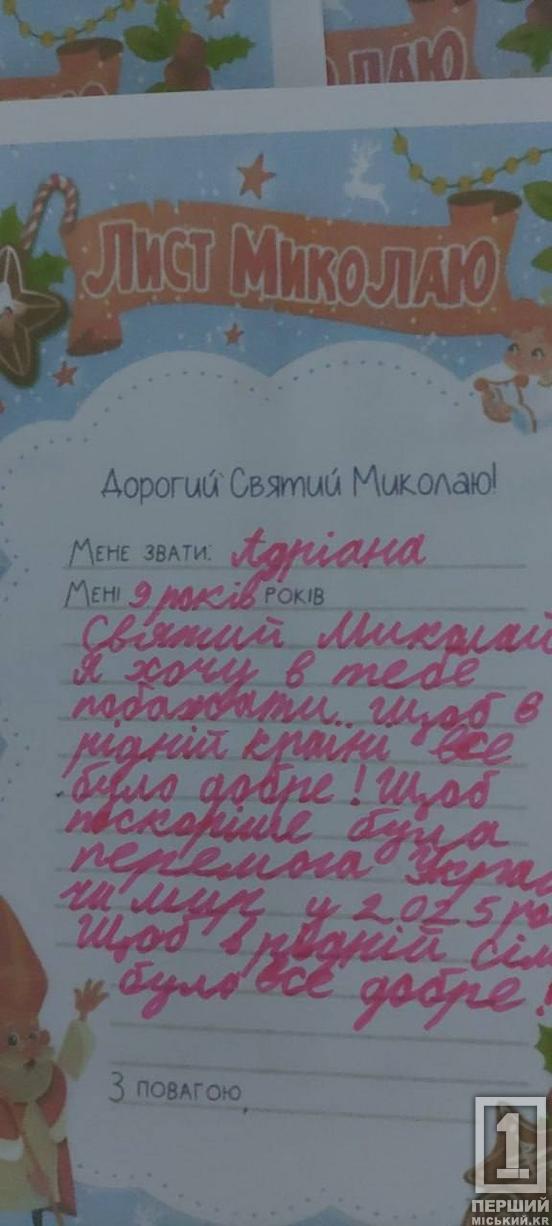 ЛАЮ
ЛИСТ МИКОЛАЮ
Дорогий Святий Миколаю!
Мене звати: Адріана
Мені 9 років років
Святий Миколай
Я хочу в тебе
побажати.. Щоб в
рідній країні все
було добре! Щоб
поскоріше була
перемога
чи мир у 2025 ро
Щоб в рідній сім
було все добре!
З повагою,
1
ПЕРШИЙ
МІСЬКИЙ.КР